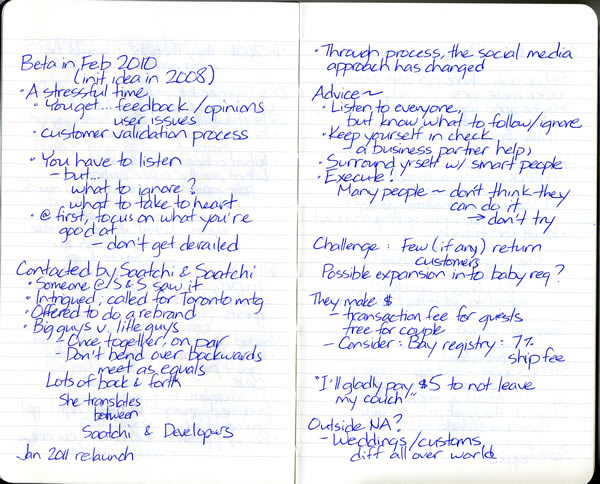 Beta in Feb 2010
(init idea in 2008)
• A stressful time
• You get... feedback/opinions
user issues
• customer validation process
• You have to listen
- but...
what to ignore?
what to take to heart
• @ first, focus on what you're
good at
- don't get derailed
Contacted by Saatchi & Saatchi
• Someone @ S & S saw it
• Intrigued, called for Toronto mtg
• Offered to do a rebrand
• Big guys v. little guys
- Once together, on par
- Don't bend over backwards
meet as equals
Lots of back & forth
She translates
between
Saatchi & Developers
Jan 2011 relaunch
• Through process, the social media
approach has changed
Advice ~
• Listen to everyone,
but know what to follow/ignore
• Keep yourself in check
- a business partner helps
• Surround yrself w/ smart people
• Execute!
Many people ~ don't think they
can do it
→ don't try
Challenge: Few (if any) return
customers
Possible expansion into baby reg?
They make $
- transaction fee for guests
free for couple
- Consider: Bay registry: 7%
ship fee
"I'll gladly pay $5 to not leave
my couch"
Outside NA?
- Weddings/customs,
diff all over world